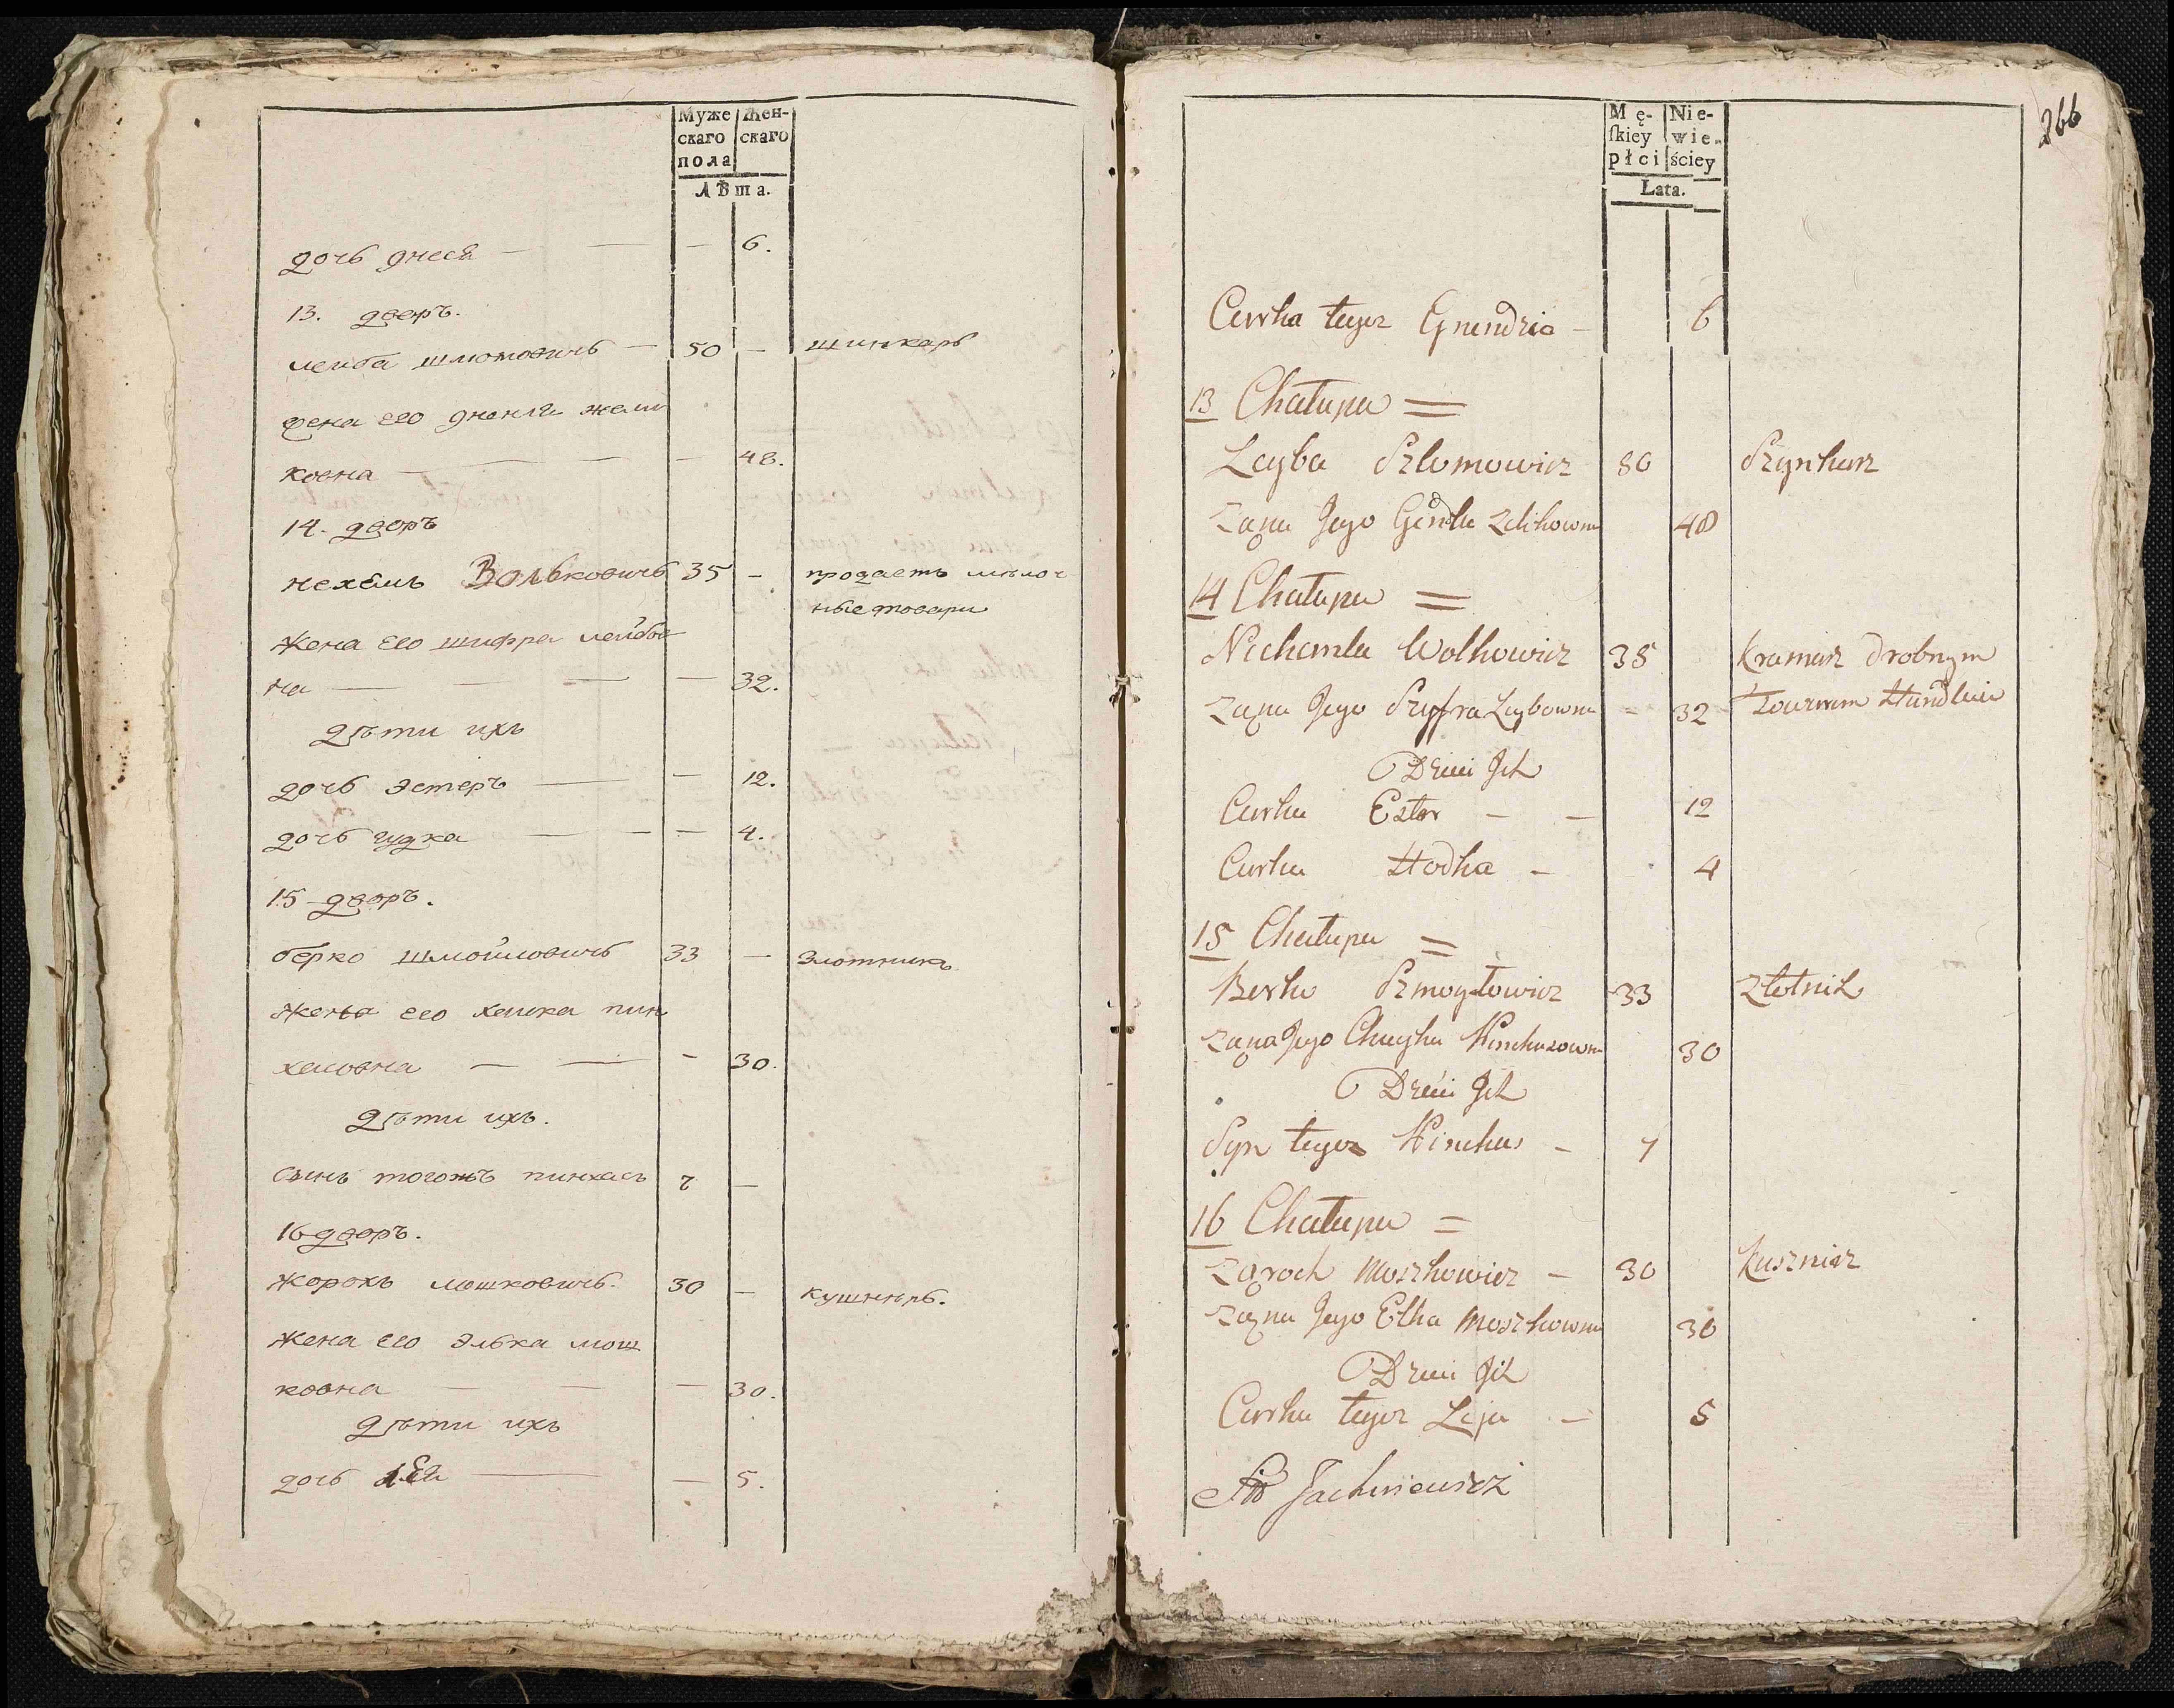 Муже
скаго
пола
Жен-
скаго
Лѣта.
дочь днеся — — — 6.
13. дворъ.
леиба шлиомовичь — 50 — шинкарь
жена его
ковна — — — 48.
14. дворъ
нехемь Вольковичь 35 — продаетъ мѣлоч
ные товари
жена его шифра лейбов
на — — — — 32.
дѣти ихъ
дочь эстеръ — — 12.
дочь гудка — — — 4.
15 дворъ.
берко шмойловичь 33 — злотникъ
жена его хаика пин
хасовна — — — 30.
дѣти ихъ.
сынъ тогожъ пинхасъ 7 —
16 дворъ.
жорохъ мошковичь. 30 — кушнирь.
жена его элька мош
ковна — — — 30.
дѣти ихъ
дочь лея — — 5.
266
Mę-
ſkiey
płci
Nie-
wie-
ściey
Lata.
Corka tegoz Gnendzia — 6
13 Chałupa =
Leyba Szlomowicz 50 Szynkarz
Zona Jego Gendla Zelikowna 48
14 Chałupa =
Nechemla Wolkowicz 35 Kramarz drobnym
Zona Jego Szyfra Leybowna - 32 Towarem Handluie
Dzieci Jch
Corka Ester — — 12
Corka Hodka — 4
15 Chałupa =
Berko Szmoyłowicz 33 Złotnik
Zona Jego Chayka Pinchasowna 30
Dzieci Jch
Syn tegoz Pinchas — 7
16 Chałupa =
Zoroch Moszkowicz — 30 Kusznierz
Zona Jego Elka Moszkowna 30
Dzieci Jch
Corka tegoz Leja — 5
Jachniewicz